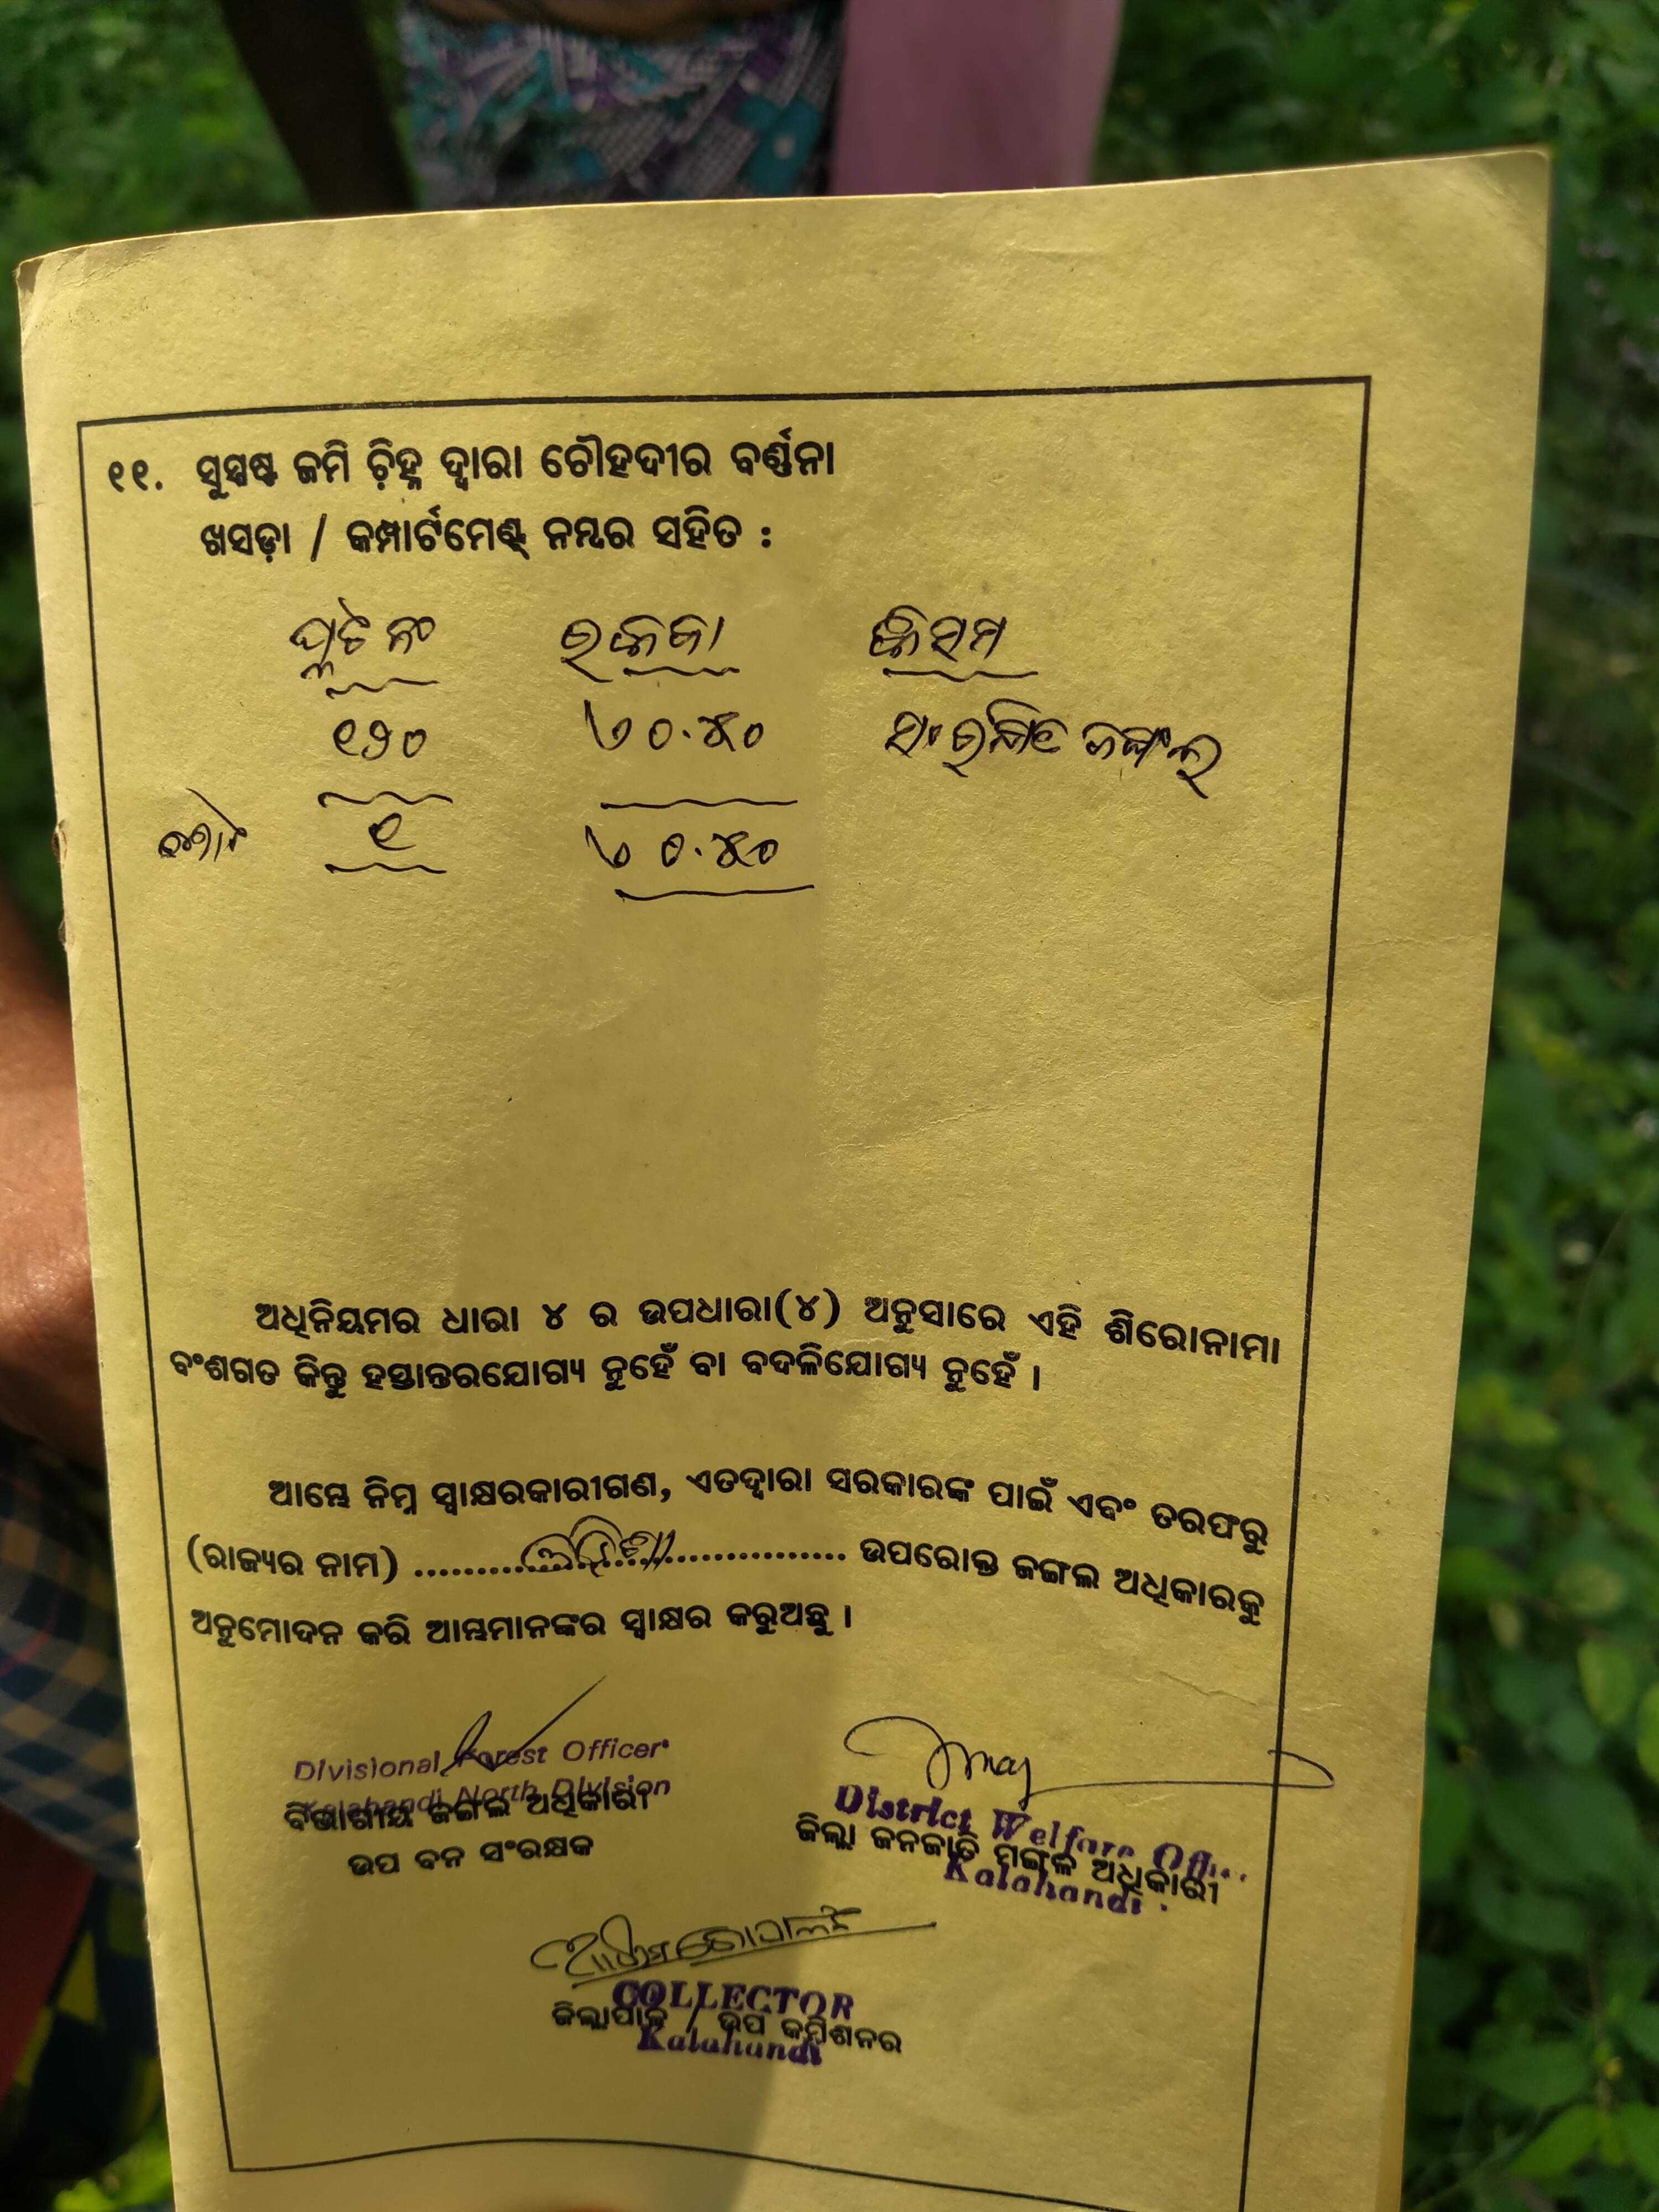 ୧୧. ସୁସ୍ପଷ୍ଟ ଜମି ଚ଼ିହ୍ନ ଦ୍ୱାରା ଚୌହଦୀର ବର୍ଣ୍ଣନା
ଖସଡ଼ା / କମ୍ପାର୍ଟମେଣ୍ଟ୍ ନମ୍ବର ସହିତ :
ପ୍ଲଟ ନଂ ରକବା କିସମ
୧୨୦ ୭୦.୪୦ ସଂରକ୍ଷିତ ଜଙ୍ଗଲ
୧ ୭୦.୪୦
ଅଧିନିୟମର ଧାରା ୪ ର ଉପଧାରା(୪) ଅନୁସାରେ ଏହି ଶିରୋନାମା
ବଂଶଗତ କିନ୍ତୁ ହସ୍ତାନ୍ତରଯୋଗ୍ୟ ନୁହେଁ ବା ବଦଳିଯୋଗ୍ୟ ନୁହେଁ ।
ଆମ୍ଭେ ନିମ୍ନ ସ୍ୱାକ୍ଷରକାରୀଗଣ, ଏତଦ୍ୱାରା ସରକାରଙ୍କ ପାଇଁ ଏବଂ ତରଫରୁ
(ରାଜ୍ୟର ନାମ) ........ଓଡ଼ିଶା........ ଉପରୋକ୍ତ ଜଙ୍ଗଲ ଅଧିକାରକୁ
ଅନୁମୋଦନ କରି ଆମ୍ଭମାନଙ୍କର ସ୍ୱାକ୍ଷର କରୁଅଛୁ ।
Divisional Forest Officer
Kalahandi North Division
ବିଭାଗୀୟ ଜଙ୍ଗଲ ଅଧିକାରୀ
ଉପ ବନ ସଂରକ୍ଷକ
District Welfare
ଜିଲ୍ଲା ଜନଜାତି ମଙ୍ଗଳ ଅଧିକାରୀ
Kalahandi
COLLECTOR
ଜିଲ୍ଲାପାଳ / ଉପ କମିଶନର
Kalahandi